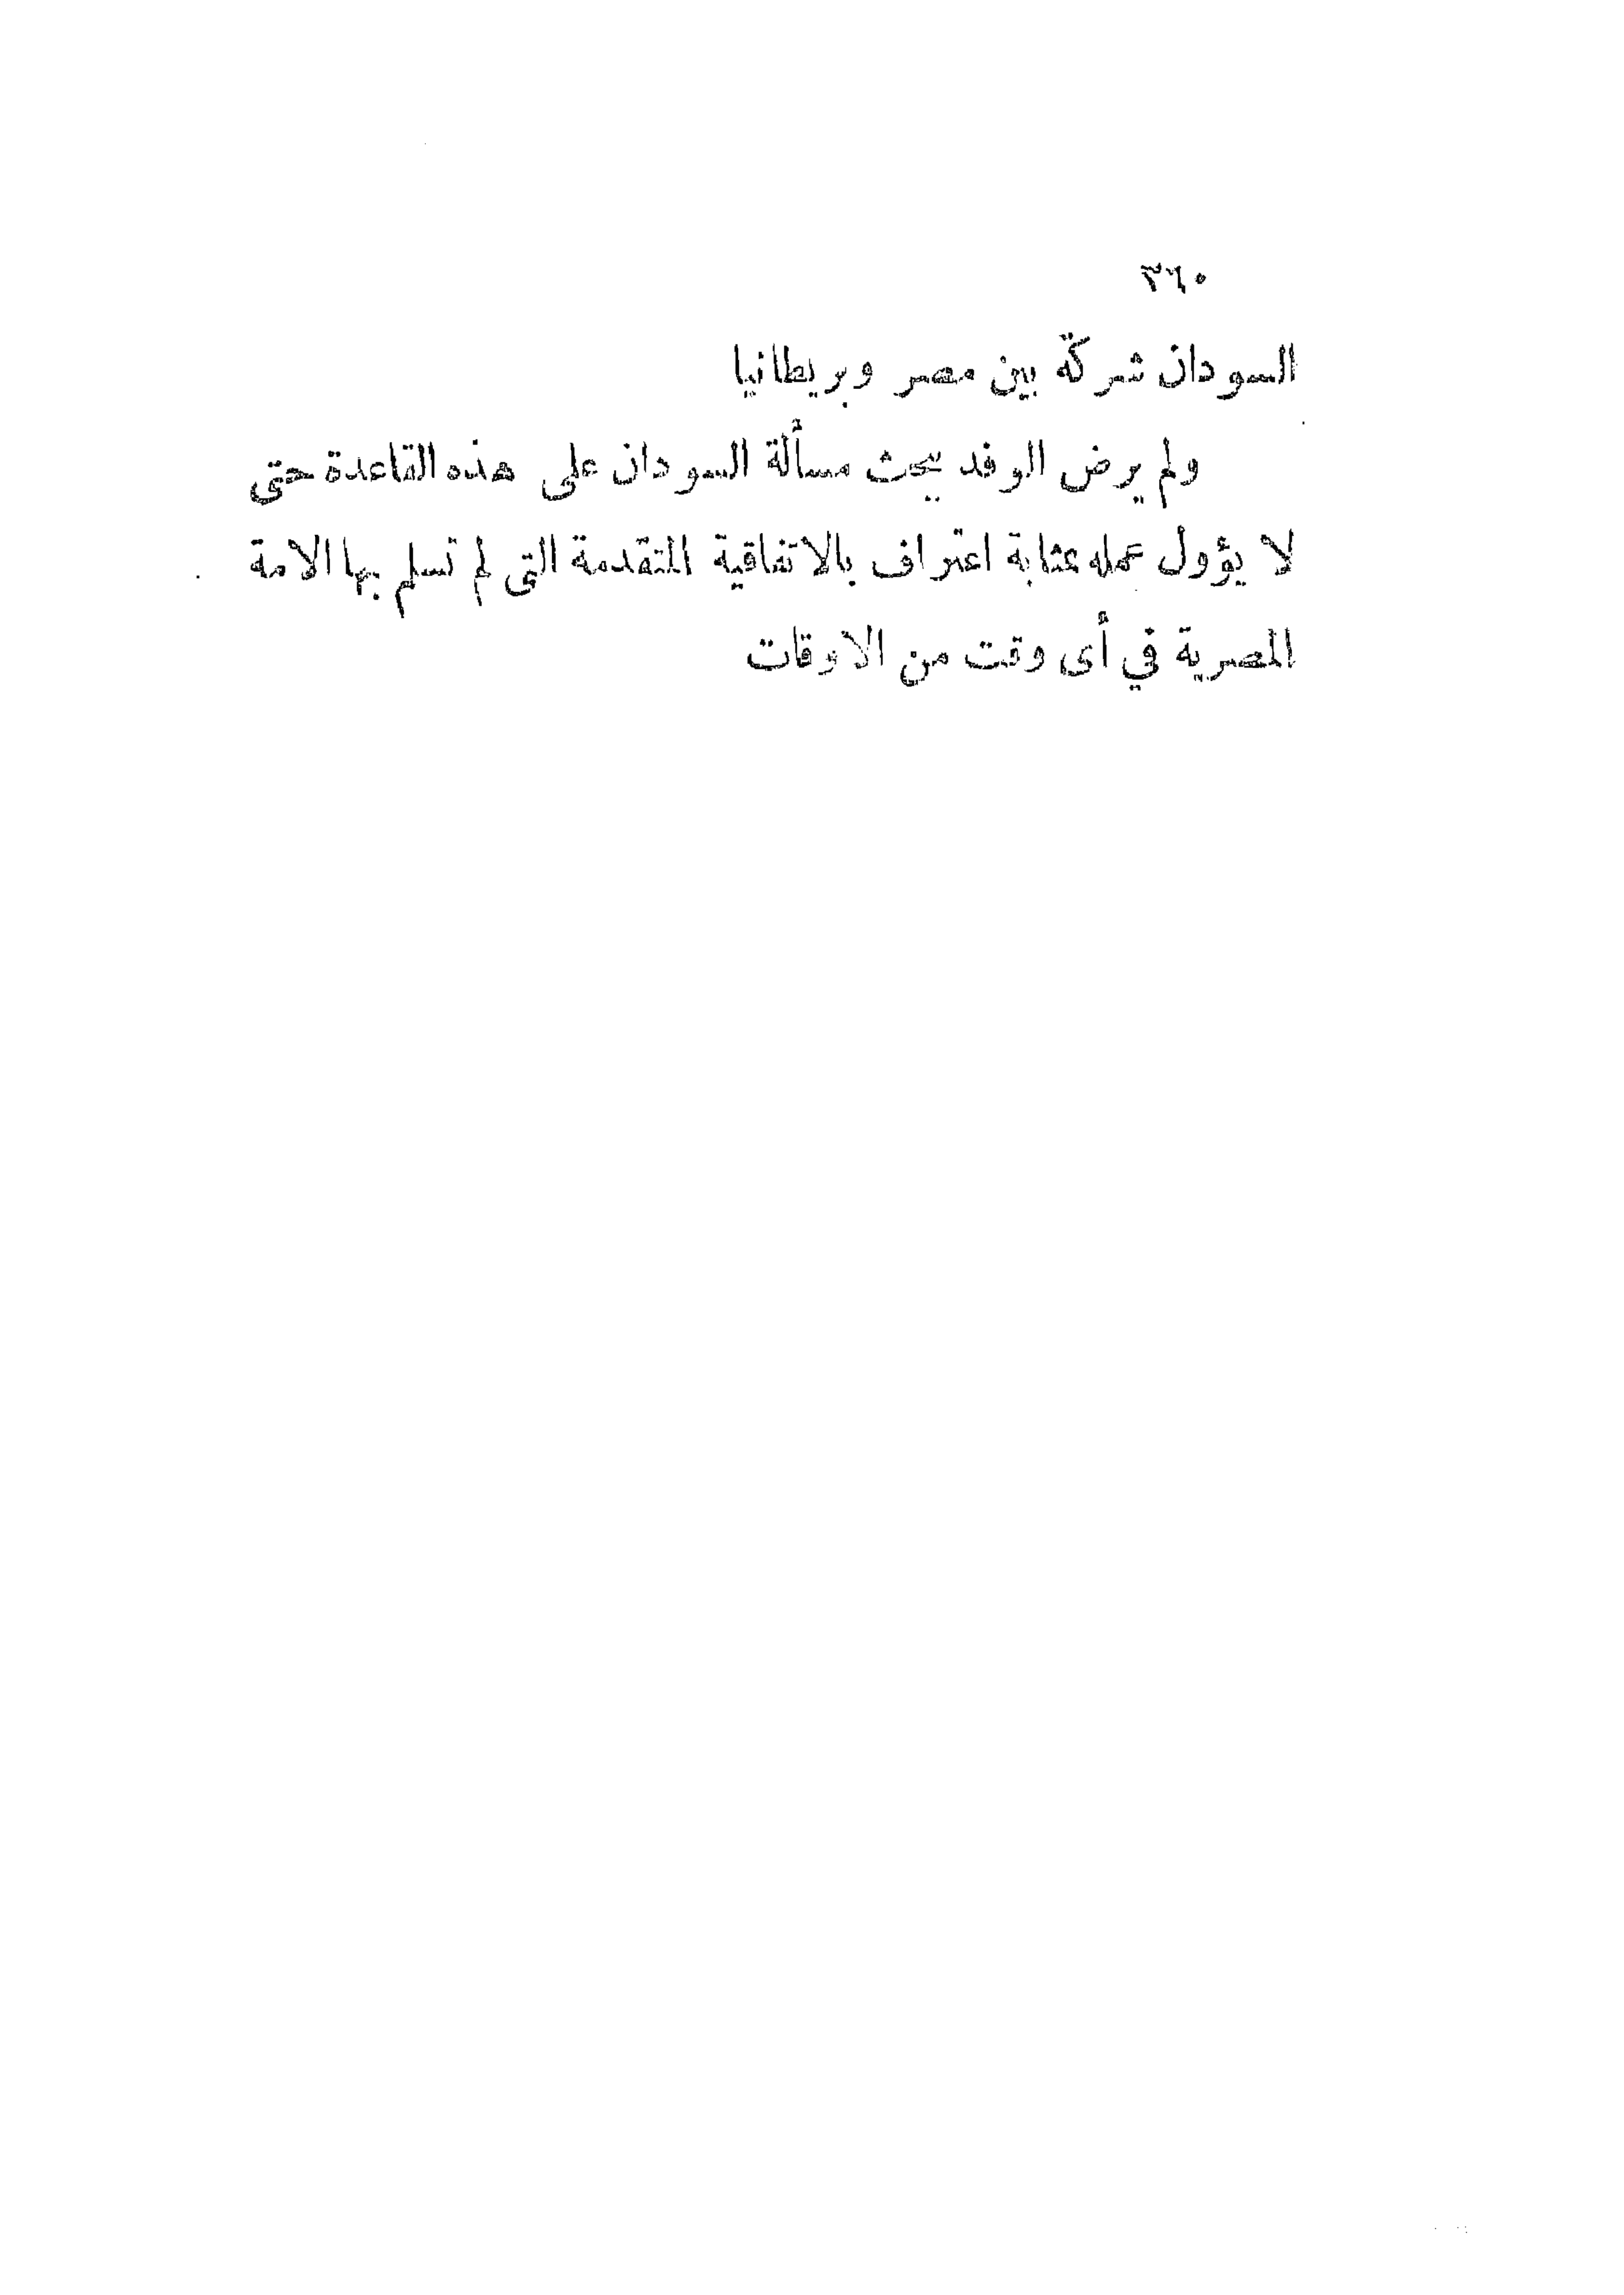 ٣٦٠
السودان شركة بين مصر وبريطانيا
ولم يرض الوفد يبحث مسألة السودان على هذه القاعدة حتى
لا يؤول عمله بمثابة اعتراف بالاتفاقية المتقدمة التى لم تسلم بها الامة
المصرية في أى وقت من الاوقات